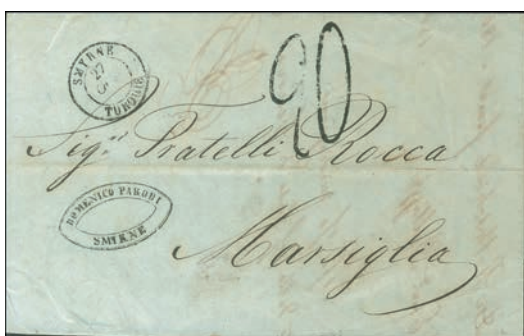 SMYRNE
27
TURQUIE
20
Sig.ri Fratelli Rocca
DOMENICO PARODI
SMIRNE
Marsiglia